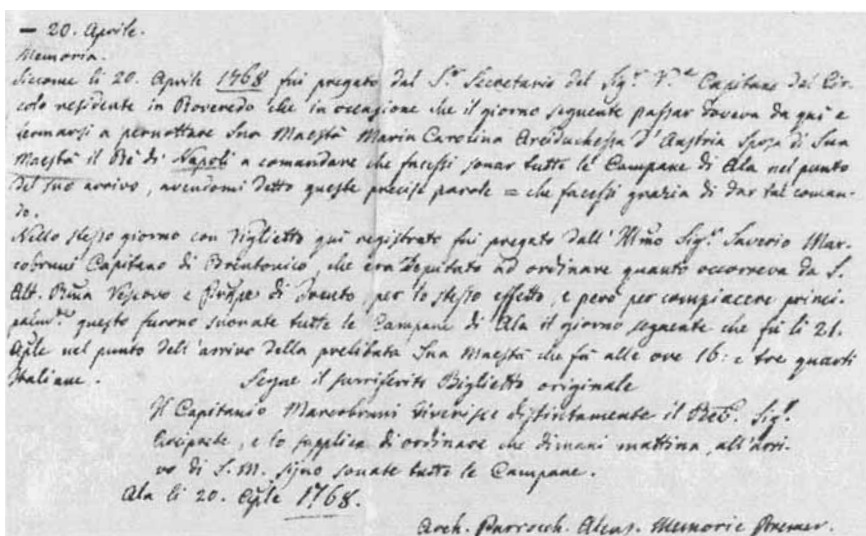 – 20. Aprile.
Memoria.
Siccome li 20. Aprile 1768 fui pregato dal S.r Secretario del Sig.r V.e Capitano del Cir-
colo residente in Roveredo che in occasione che il giorno seguente passar doveva da qui e
fermarsi a pernottare Sua Maestà Maria Carolina Arciduchessa d'Austria Sposa di Sua
Maestà il Rè di Napoli a comandare che facessi sonar tutte le Campane di Ala nel punto
del suo arrivo, avendomi detto queste precise parole = che facessi grazia di dar tal coman-
do.
Nello stesso giorno con Viglietto qui registrato fui pregato dall' Illmo Sig.r Saverio Mar-
cobruni Capitano di Brentonico, che era Deputato ad ordinare quanto occorreva da S.
Alt. Rma Vescovo e Prñpe di Trento, per lo stesso effetto, e però per compiacere princi-
palm.te questo furono suonate tutte le Campane di Ala il giorno seguente che fù li 21.
Aple nel punto dell' arrivo della prelibata Sua Maestà che fù alle ore 16: e tre quarti
Italiane. Segue il surriferito Biglietto originale
Il Capitanio Marcobruni riverisce distintamente il Sig.r
Arciprete, e lo supplica di ordinare che dimani mattina, all' arri-
vo di S. M. sijno sonate tutte le Campane.
Ala li 20. Aple 1768.
Arch. Parrocch. Alens. Memorie